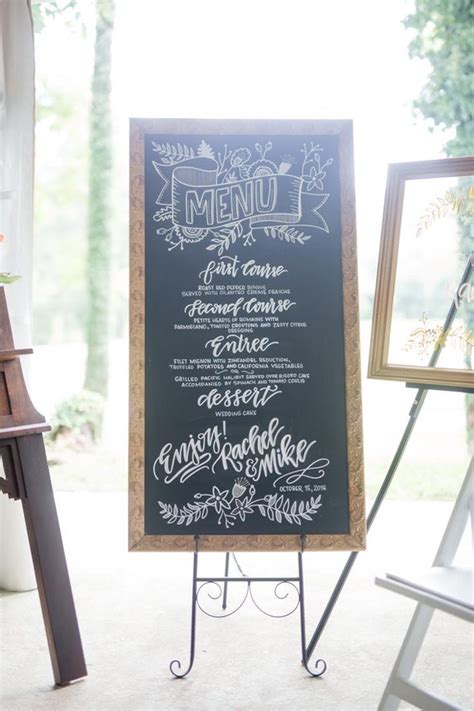 MENU
First Course
ROAST RED PEPPER BISQUE
SERVED WITH CILANTRO CREME FRAICHE
Second Course
PETITE HEARTS OF ROMAINE WITH
PARMIGIANO, TOASTED CROUTONS AND ZESTY CITRUS
DRESSING
Entree
FILET MIGNON WITH ZINFANDEL REDUCTION,
TRUFFLED POTATOES AND CALIFORNIA VEGETABLES
OR
GRILLED PACIFIC HALIBUT SERVED OVER RISOTTO CAKE
ACCOMPANIED BY SPINACH AND TOMATO COULIS
dessert
WEDDING CAKE
Enjoy!
Rachel
& Mike
OCTOBER 15, 2016